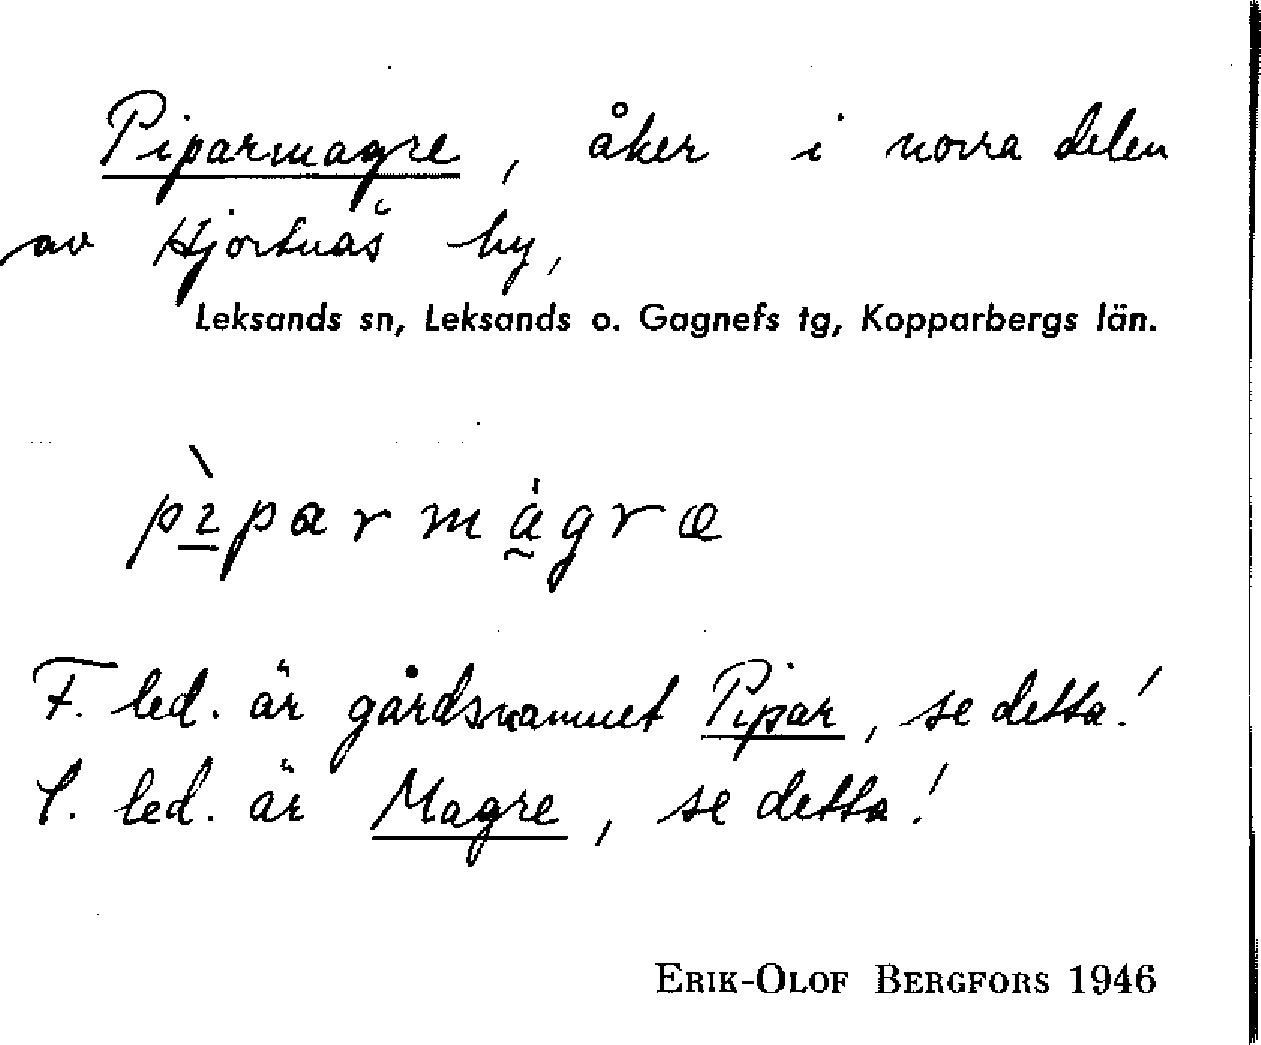 Piparmagre, åker i norra delen
av Hjortnäs by,
Leksands sn, Leksands o. Gagnefs tg, Kopparbergs län.
pìparmágræ
F. led. är gårdsnamnet Pipar, se detta!
S. led. är Magre, se detta!
ERIK-OLOF BERGFORS 1946